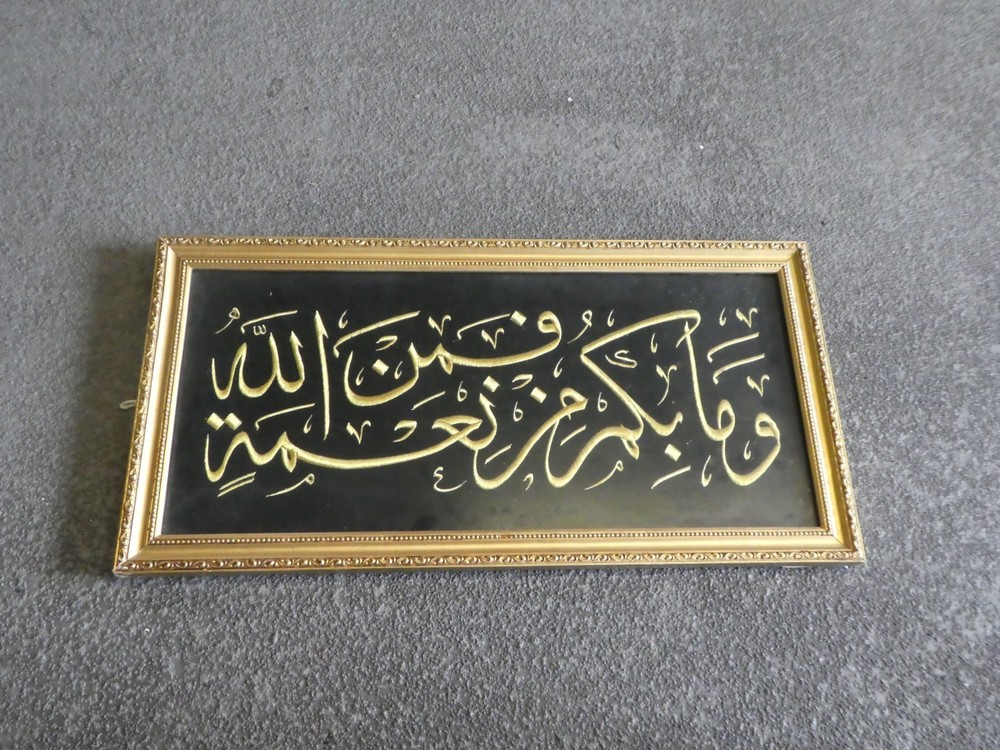 وَمَا بِكُم مِّن نِّعْمَةٍ
فَمِنَ اللَّهِ